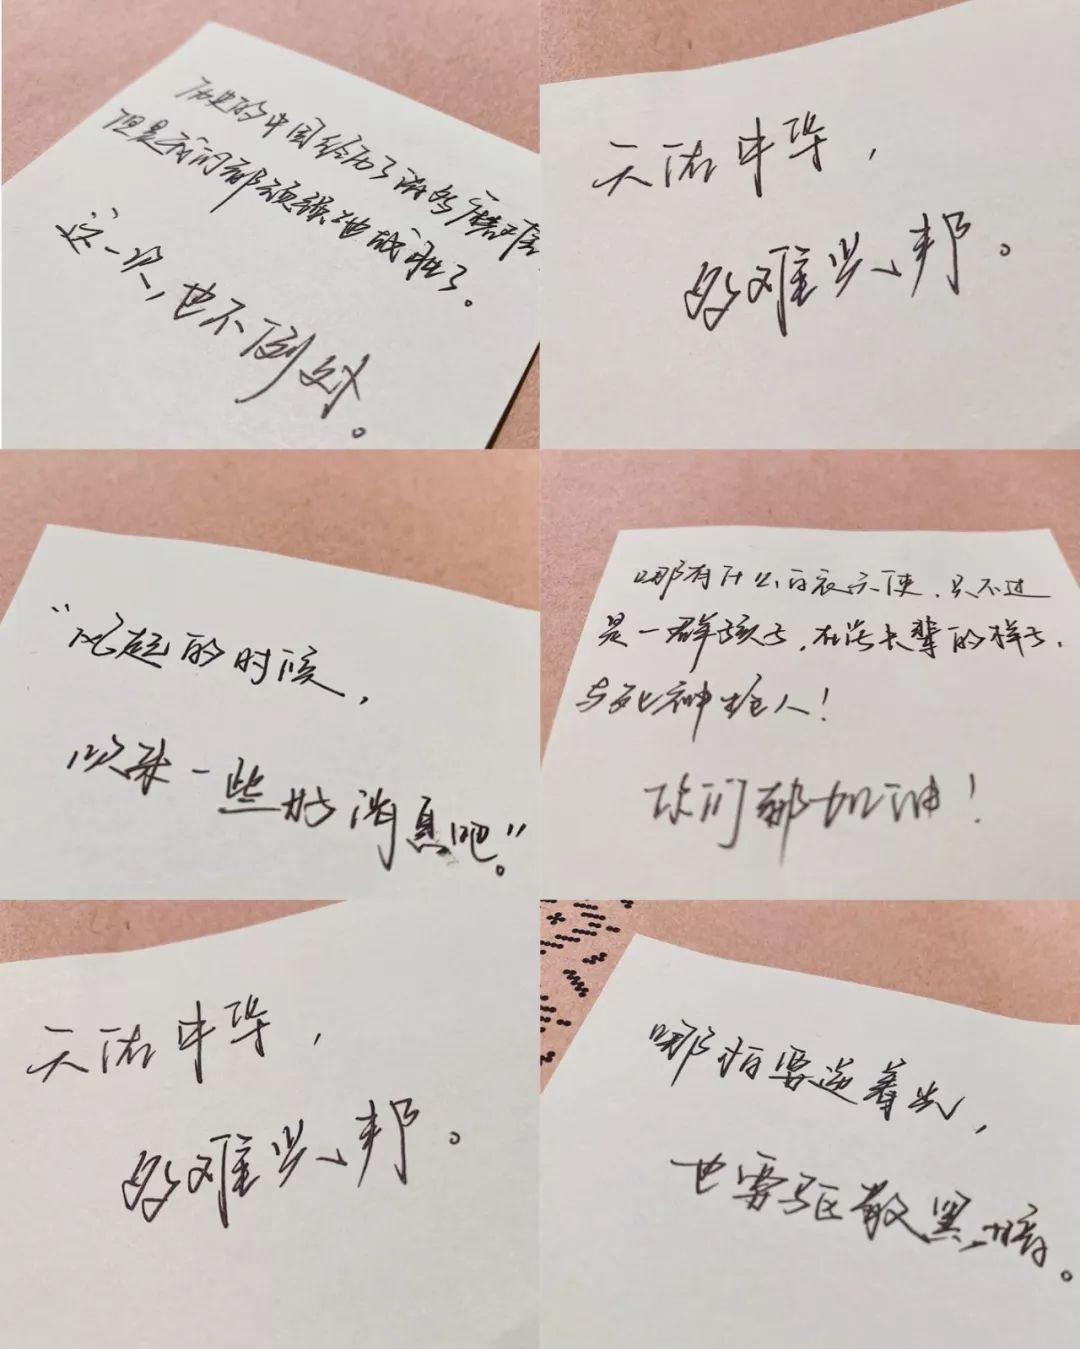 历史的中国经历了许多磨难
但是我们都顽强地战胜了。
这一次，也不例外。
天佑中华，
多难兴邦。
“风起的时候，
吹来一些好消息吧。”
哪有什么白衣天使，只不过
是一群孩子，在学长辈的样子，
与死神抢人！
你们都加油！
天佑中华，
多难兴邦。
哪怕要逆着光，
也要驱散黑暗。